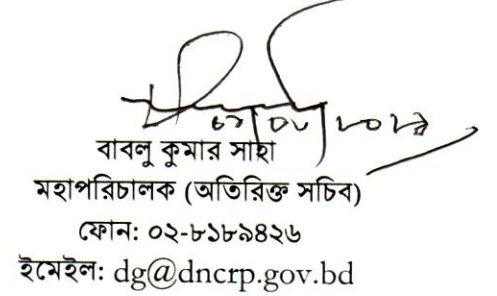 বাবলু কুমার সাহা
মহাপরিচালক (অতিরিক্ত সচিব)
ফোন: ০২-৮১৮৯৪২৬
ইমেইল: dg@dncrp.gov.bd